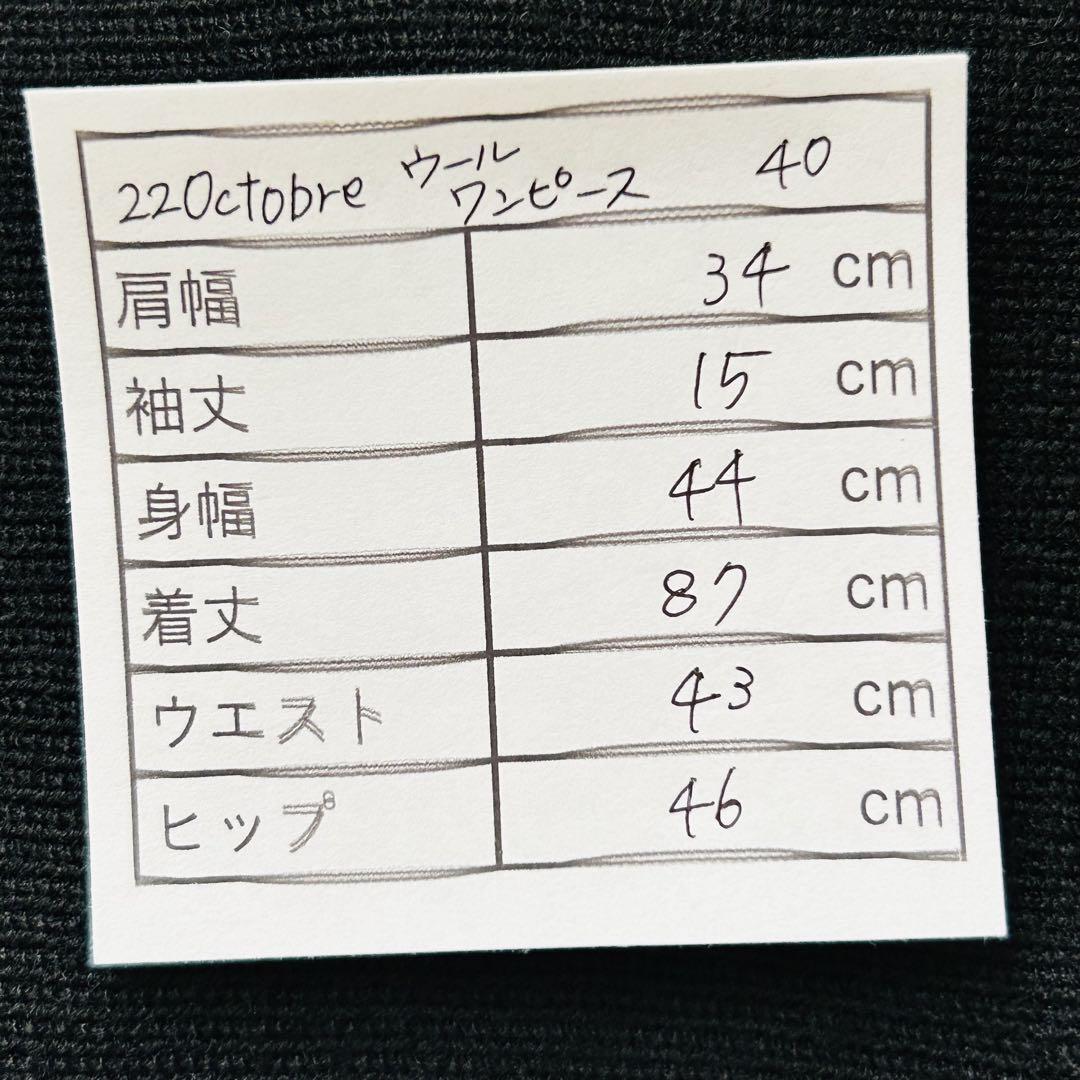 22Octobre ウール ワンピース 40
肩幅 34 cm
袖丈 15 cm
身幅 44 cm
着丈 87 cm
ウエスト 43 cm
ヒップ 46 cm